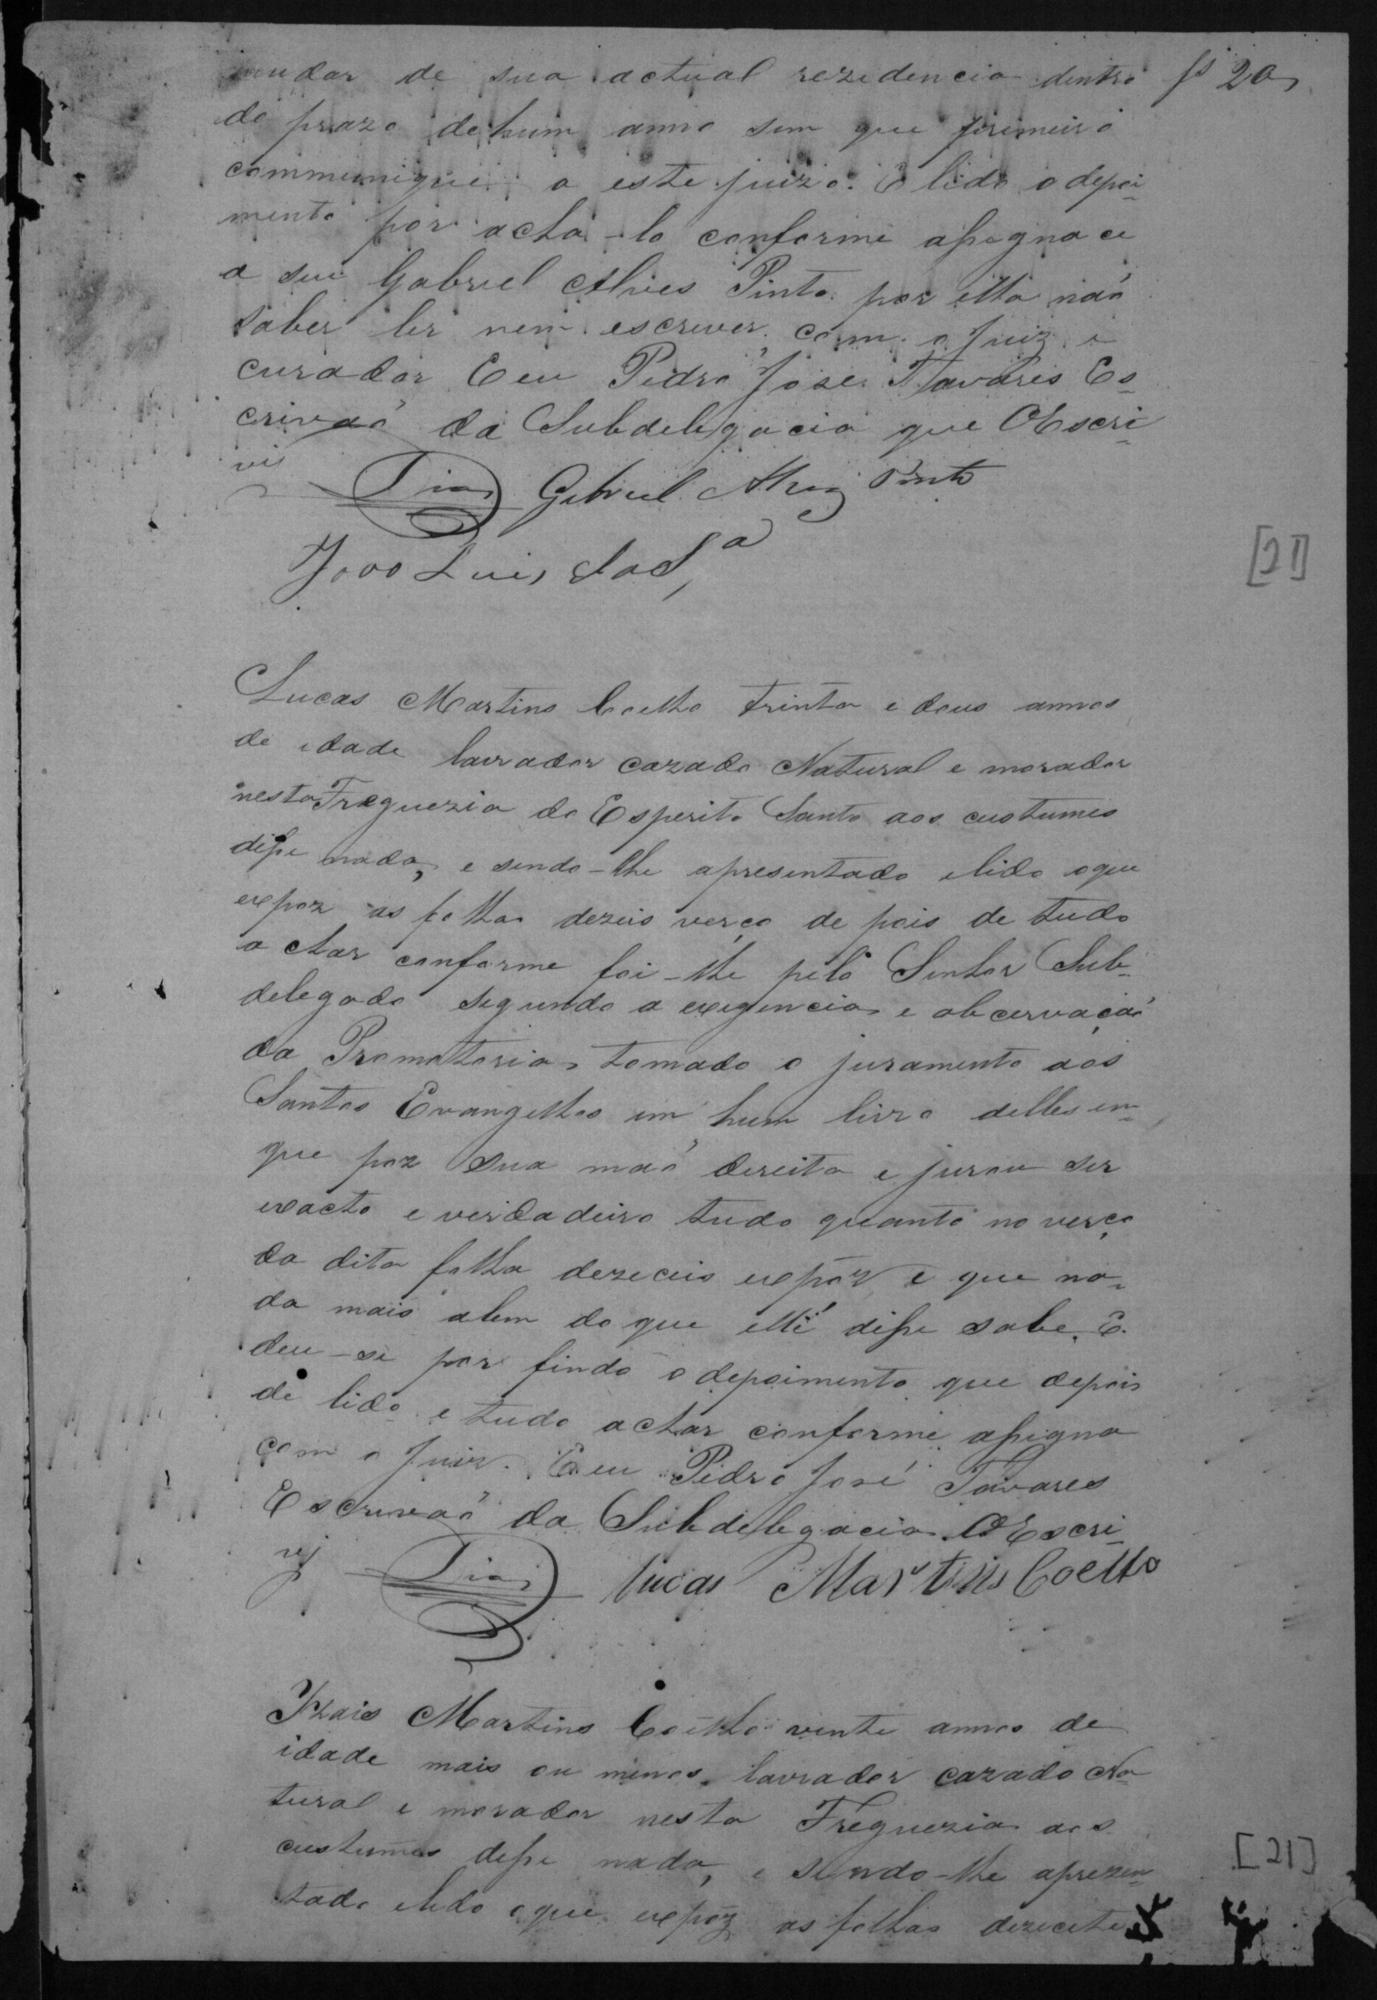 mudar de sua actual rezidencia dentro fs 20
do prazo de hum anno sem que primeiro
communique a este juizo. E lido o depoi-
mento por acha-lo conforme assigna
a seu Gabriel Alves Pinto por ella não
saber ler nem escrever com o Juiz e
curador E eu Pedro José Tavares Es-
crivaõ da Subdelegacia que O Escri-
vi
Dias Gabriel Alves Pinto
Joao Luis da S.ª
[21]
Lucas Martins Coelho trinta e dous annos
de idade lavrador cazado Natural e morador
nesta Freguezia do Esperito Santo aos custumes
disse nada, e sendo-lhe apresentado e lido o que
expoz as folhas dezeis verço de pois de tudo
achar conforme foi-lhe pelo Senhor Sub-
delegado segundo a exegencia e abcervaçaõ
da Promotoria, tomado o juramento aos
Santos Evangelhos em hum livro delles em
que poz sua maõ direita e jurou ser
exacto e verdadeiro tudo quanto no verço
da dita folha dezeceis expoz e que na-
da mais alem do que elle disse sabe. E
deu-se por findo o depoimento que depois
de lido e tudo achar conforme assigna
com o Juiz. E eu Pedro José Tavares
Escrivaõ da Subdelegacia O Escri-
vj
Dias Lucas Martins Coelho
Izais Martins Coelho vinte annos de
idade mais ou menos, lavrador cazado Na
tural e morador nesta Freguezia aos
custumes disse nada, e sendo-lhe aprezen
tado e lido o que expoz as folhas dezecete
[21]